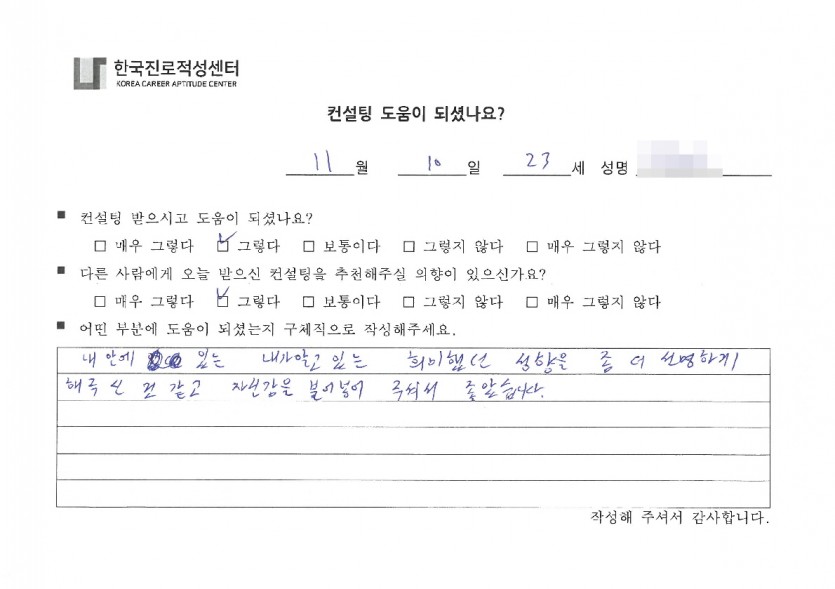 한국진로적성센터
KOREA CAREER APTITUDE CENTER
컨설팅 도움이 되셨나요?
11 월 10 일 23 세 성명
■ 컨설팅 받으시고 도움이 되셨나요?
□ 매우 그렇다 ☑ 그렇다 □ 보통이다 □ 그렇지 않다 □ 매우 그렇지 않다
■ 다른 사람에게 오늘 받으신 컨설팅을 추천해주실 의향이 있으신가요?
□ 매우 그렇다 ☑ 그렇다 □ 보통이다 □ 그렇지 않다 □ 매우 그렇지 않다
■ 어떤 부분에 도움이 되셨는지 구체적으로 작성해주세요.
내 안에 있는 내가 알고 있는 희미했던 성향을 좀 더 선명하게
해주신 것 같고 자신감을 불어넣어 주셔서 좋았습니다.
작성해 주셔서 감사합니다.